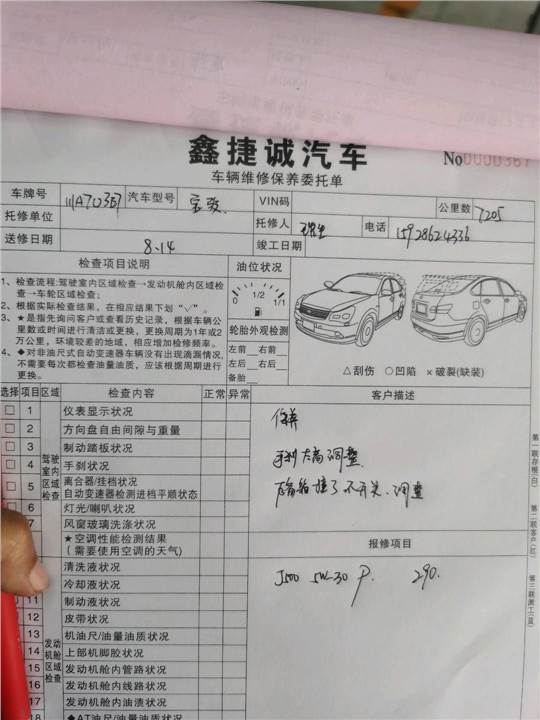 鑫捷诚汽车
No0000367
车辆维修保养委托单
车牌号 川A70367 汽车型号 宝骏 VIN码 公里数 7205
托修单位 托修人 电话 15928624336
送修日期 8.14 竣工日期
检查项目说明
1、检查流程:驾驶室内区域检查→发动机舱内区域检查→车轮区域检查;
2、根据实际检查结果,在相应结果下划“√”。
3、★是指先询问客户或查看历史记录,根据车辆公里数或时间进行清洁或更换,更换周期为1年或2万公里,环境较差的地域,相应增加检修频率。
4、◆对非油尺式自动变速器车辆没有出现滴漏情况,不需要每次都检查油量油质,应该根据周期进行更换。
油位状况
0 1/2 1/1
轮胎外观检测
左前 右前
左后 右后
备胎
△刮伤 ○凹陷 ×破裂(缺装)
选择 项目 区域 检查内容 正常 异常
驾驶室内区域检查
1 仪表显示状况
2 方向盘自由间隙与重量
3 制动踏板状况
4 手刹状况
5 离合器/挂档状况
自动变速器检测进档平顺状态
6 灯光/喇叭状况
7 风窗玻璃洗涤状况
★空调性能检测结果
(需要使用空调的天气)
发动机舱区域检查
清洗液状况
冷却液状况
11 制动液状况
12 皮带状况
13 机油尺/油量油质状况
14 上部机脚胶状况
15 发动机舱内管路状况
16 发动机舱内线路状况
17 发动机舱内油渍状况
18 ◆AT油尺/油量油质状况
客户描述
保养
手刹太高调整
后备箱撞了不开关、调整
报修项目
J500 5W-30 P. 290.
第一联存根(白)
第二联客户(红)
第三联派工(蓝)